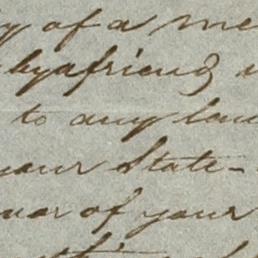 of a me
by a friend
to any law
your State-
of your